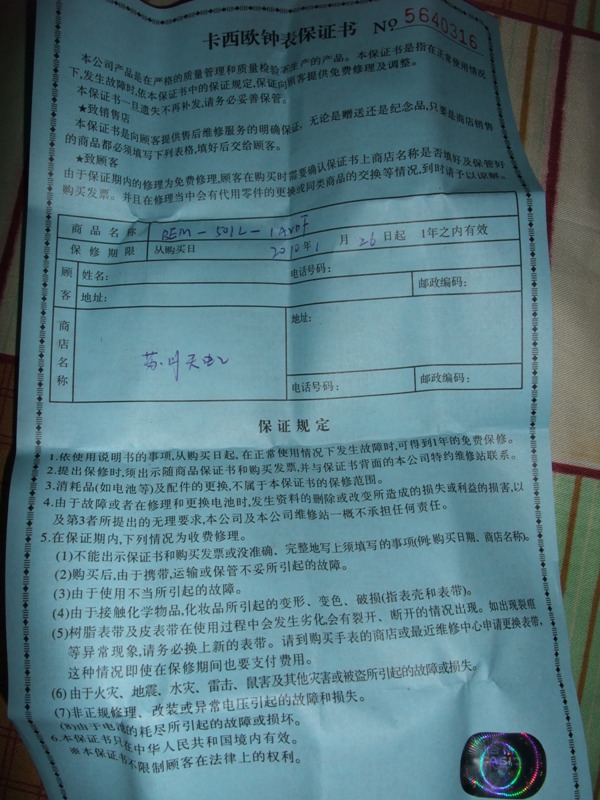 卡西欧钟表保证书 № 5640316
本公司产品是在严格的质量管理和质量检验下生产的产品。本保证书是指在正常使用情况
下,发生故障时,依本保证书中的保证规定,保证向顾客提供免费修理及调整。
本保证书一旦遗失不再补发,请务必妥善保管。
★致销售店
本保证书是向顾客提供售后维修服务的明确保证,无论是赠送还是纪念品,只要是商店销售
的商品都必须填写下列表格,填好后交给顾客。
★致顾客
由于保证期内的修理为免费修理,顾客在购买时需要确认保证书上商店名称是否填好及保管好
购买发票。并且在修理当中会有代用零件的更换或同类商品的交换等情况,到时请予以谅解。
商品名称 BEM-501L-1AVDF
保修期限 从购买日 2010年1月26日起 1年之内有效
顾客 姓名: 电话号码:
地址: 邮政编码:
商店名称 苏州 地址:
电话号码: 邮政编码:
保证规定
1.依使用说明书的事项,从购买日起,在正常使用情况下发生故障时,可得到1年的免费保修。
2.提出保修时,须出示随商品保证书和购买发票,并与保证书背面的本公司特约维修站联系。
3.消耗品(如电池等)及配件的更换,不属于本保证书的保修范围。
4.由于故障或者在修理和更换电池时,发生资料的删除或改变所造成的损失或利益的损害,以
及第3者所提出的无理要求,本公司及本公司维修站一概不承担任何责任。
5.在保证期内,下列情况为收费修理。
(1)不能出示保证书和购买发票或没准确、完整地写上须填写的事项(例:购买日期、商店名称)。
(2)购买后,由于携带,运输或保管不妥所引起的故障。
(3)由于使用不当所引起的故障。
(4)由于接触化学物品,化妆品所引起的变形、变色、破损(指表壳和表带)。
(5)树脂表带及皮表带在使用过程中会发生劣化会有裂开、断开的情况出现。如出现裂痕
等异常现象,请务必换上新的表带。请到购买手表的商店或最近维修中心申请更换表带,
这种情况即使在保修期间也要支付费用。
(6)由于火灾、地震、水灾、雷击、鼠害及其他灾害或被盗所引起的故障或损失。
(7)非正规修理、改装或异常电压引起的故障和损失。
(8)由于电池的耗尽所引起的故障或损坏。
6.本保证书只在中华人民共和国境内有效。
※本保证书不限制顾客在法律上的权利。